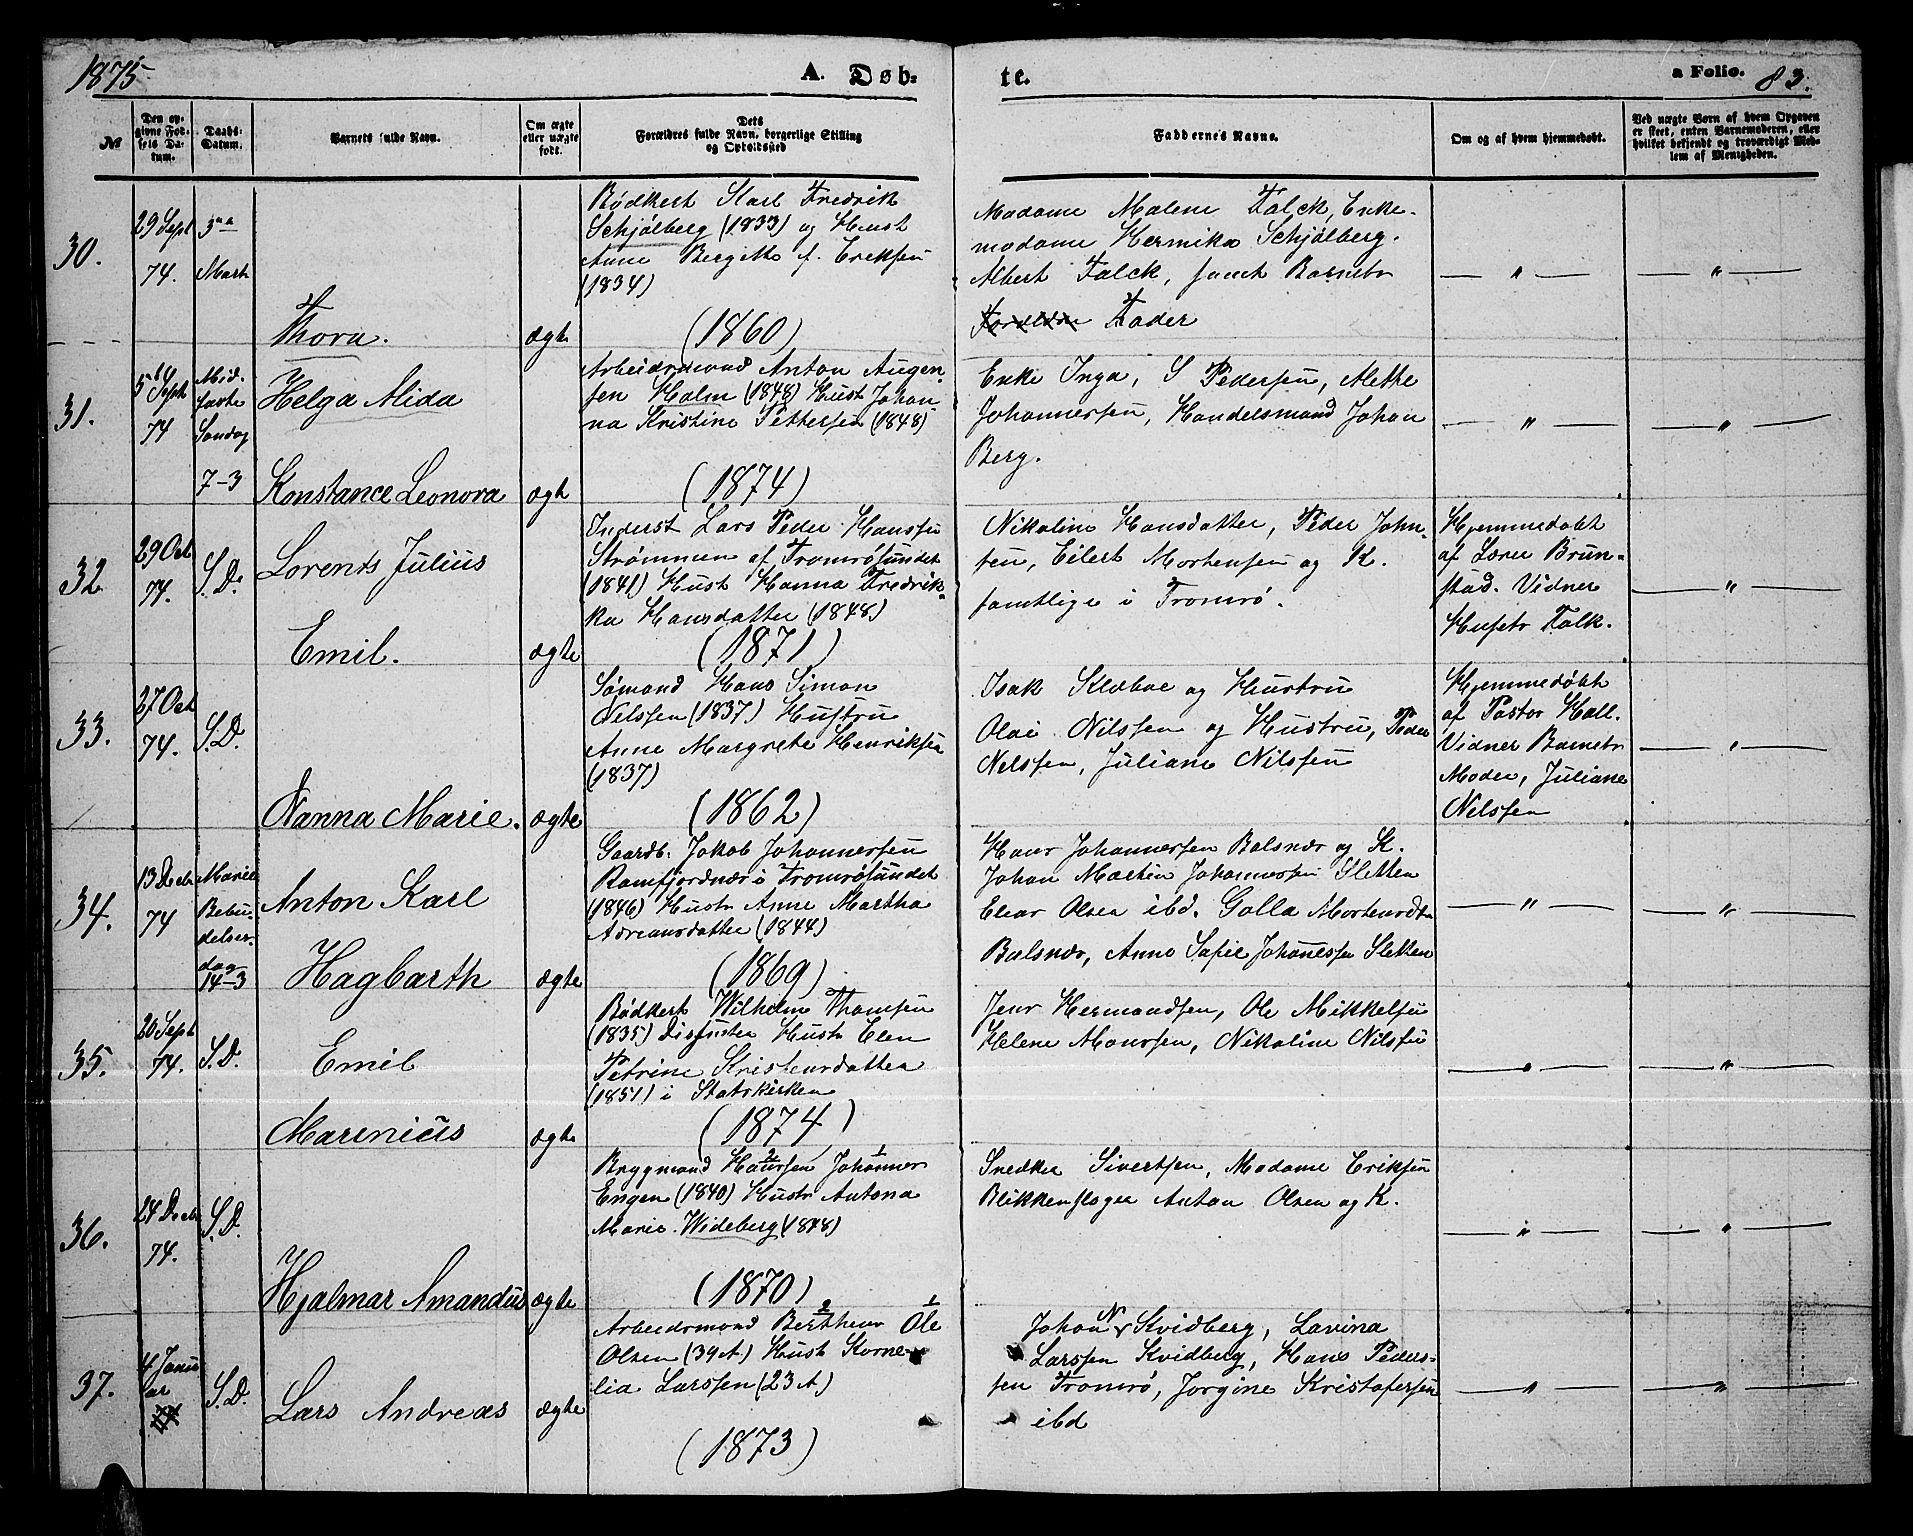 1875.
A. Døb-
te.
a Folio. 83.
№
Den op-
givne Fød-
sels Da-
tum.
Daabs-
Datum.
Barnets fulde Navn.
Om ægte
eller uægte
født.
Dets
Forældres fulde Navn, borgerlige Stilling
og Opholdssted
Faddernes Navne.
Om og af hvem hjemmedøbt.
Ved uægte Børn af hvem Opgaven
er skeet, enten Barnemoderen, eller
hvilket bekjendt og troværdigt Med-
lem af Menigheden.
30.
29 Sept
74.
3die
Marts
Thora.
ægte
Bødkers. Karl Fredrik
Schjølberg (1833) og Hust
Anne Bergitte f. Eriksen
(1834)
(1860)
Madame Malene Falck, Enke-
madame Hermika Schjølberg.
Albert Falck, samt Barnets
Fader
— " —
— " —
31.
5te Sept
74
Mid-
faste
Søndag
7-3
Helga Alida
Konstance Leonora
ægt
Arbeidsmand Anton Augen-
sen Holm (1848) Hust Johan-
na Kristine Pettersen (1848)
(1874)
Enke Inga, S Pedersen, Alethe
Johannessen, Handelsmand Johan
Berg.
— " —
— " —
32
29 Oct
74.
S.D.
Lorents Julius
Emil.
ægte
Inderst Lars Peder Hanssen
Strømmen af Tromsøsundet
(1841) Hust Hanna Fredrik-
ka Hansdatter (1848)
(1871)
Nikoline Hansdatter, Peder John-
sen, Eilert Mortensen og K.
samtlige i Tromsø.
Hjemmedøbt
af Lærer Brun-
stad. Vidner
Husets Folk.
— " —
33.
27 Oct
74.
S.D.
Nanna Marie.
ægte
Sømand Hans Simon
Nilssen (1837) Hustru
Anne Margrete Henriksen
(1837)
(1862)
Isak Klæboe og Hustru
Olai Nilssen og Hustru, Peder
Nilssen, Juliane Nilssen
Hjemmedøbt
af Pastor Hall.
Vidner Barnets
Moder, Juliane
Nilssen
— " —
34.
13 Decbr
74
Mariæ
Bebu-
delses-
dag
14-3
Anton Karl
Hagbarth
ægte
Gaardb. Jakob Johannessen
Ramfjordnæs i Tromsøsundet
(1846) Hustr Anne Martha
Adreansdatter (1844)
(1869)
Hans Johannessen Balsnæs og K.
Johan Martin Johannessen Sletten
Elear Olsen ibd. Golla Mortensdtr
Balsnæs, Anne Sofie Johanessen Sletten
— " —
— " —
35.
20 Sept
74.
S.D.
Emil
Marenius
ægte
Bødkers. Wilhelm Thomsen
(1835) Disjunter Hustr Elen
Petrine Kristensdatter
(1851) i Statskirken
(1874)
Jens Hermandsen, Ole Mikkelsen
Helene Monssen, Nikoline Nilsen
— " —
— " —
36.
24 Decbr
74.
S.D.
Hjalmar Amandus
ægte
2 1
Brygmand Hanssen Johannes
Engen (1840) Hustr Antona
Marie Wideberg (1848)
(1870)
Snedker Sivertsen, Madame Eriksen
Blikkenslager Anton Olsen og K.
— " —
— " —
37.
4 Janu
ar
S.D.
Lars Andreas
ægte
2 1
Arbeidsmand Bertheus Ole
Olsen (39 A.) Hust Korne-
lia Larssen (23 A.)
(1873)
Johan N Kvidberg, Lavina
Larssen Kvidberg, Hans Peders-
sen Tromsø, Jorgine Kristofersen
ibd
— " —
— " —